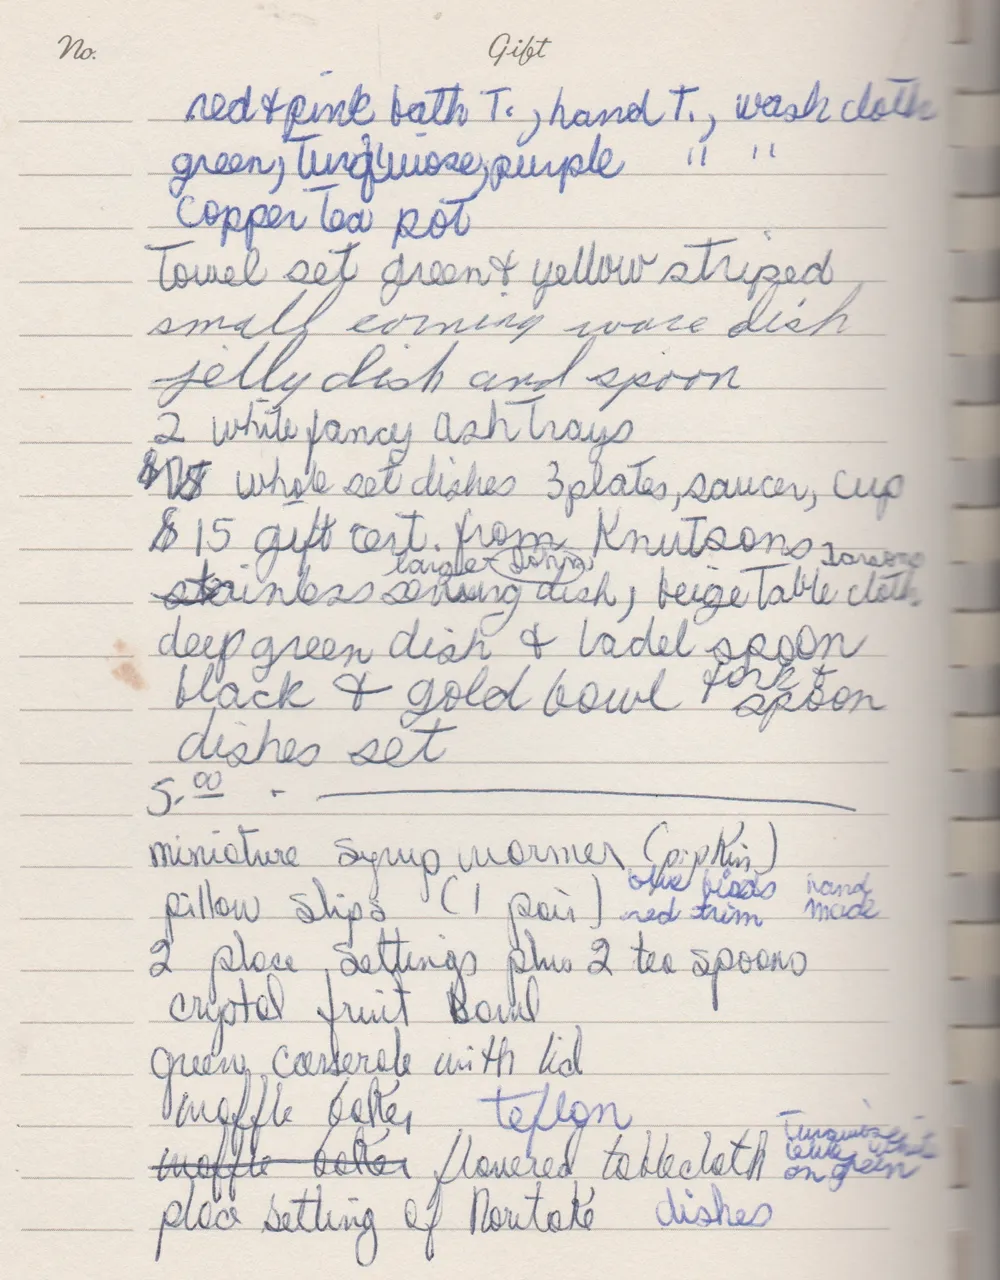 No. Gift
red & pink bath T., hand T., wash cloth
green, Turquiose, purple " "
Copper Tea pot
Towel set green & yellow striped
small corning ware dish
jelly dish and spoon
2 white fancy ash Trays
whole set dishes 3 plates, saucer, cup
$15 gift cert. from Knutsons
large
stainless serving dish, beige Table cloth
deep green dish & ladel spoon
black & gold bowl fork &
spoon
dishes set
5.00 -
miniature syrup warmer (pipkin)
pillow slips (1 pair) blue birds red trim hand made
2 place settings plus 2 tea spoons
crystal fruit Bowl
green casserole with lid
waffle baker teflon
waffle baker flowered tablecloth on green
place setting of Noritake dishes